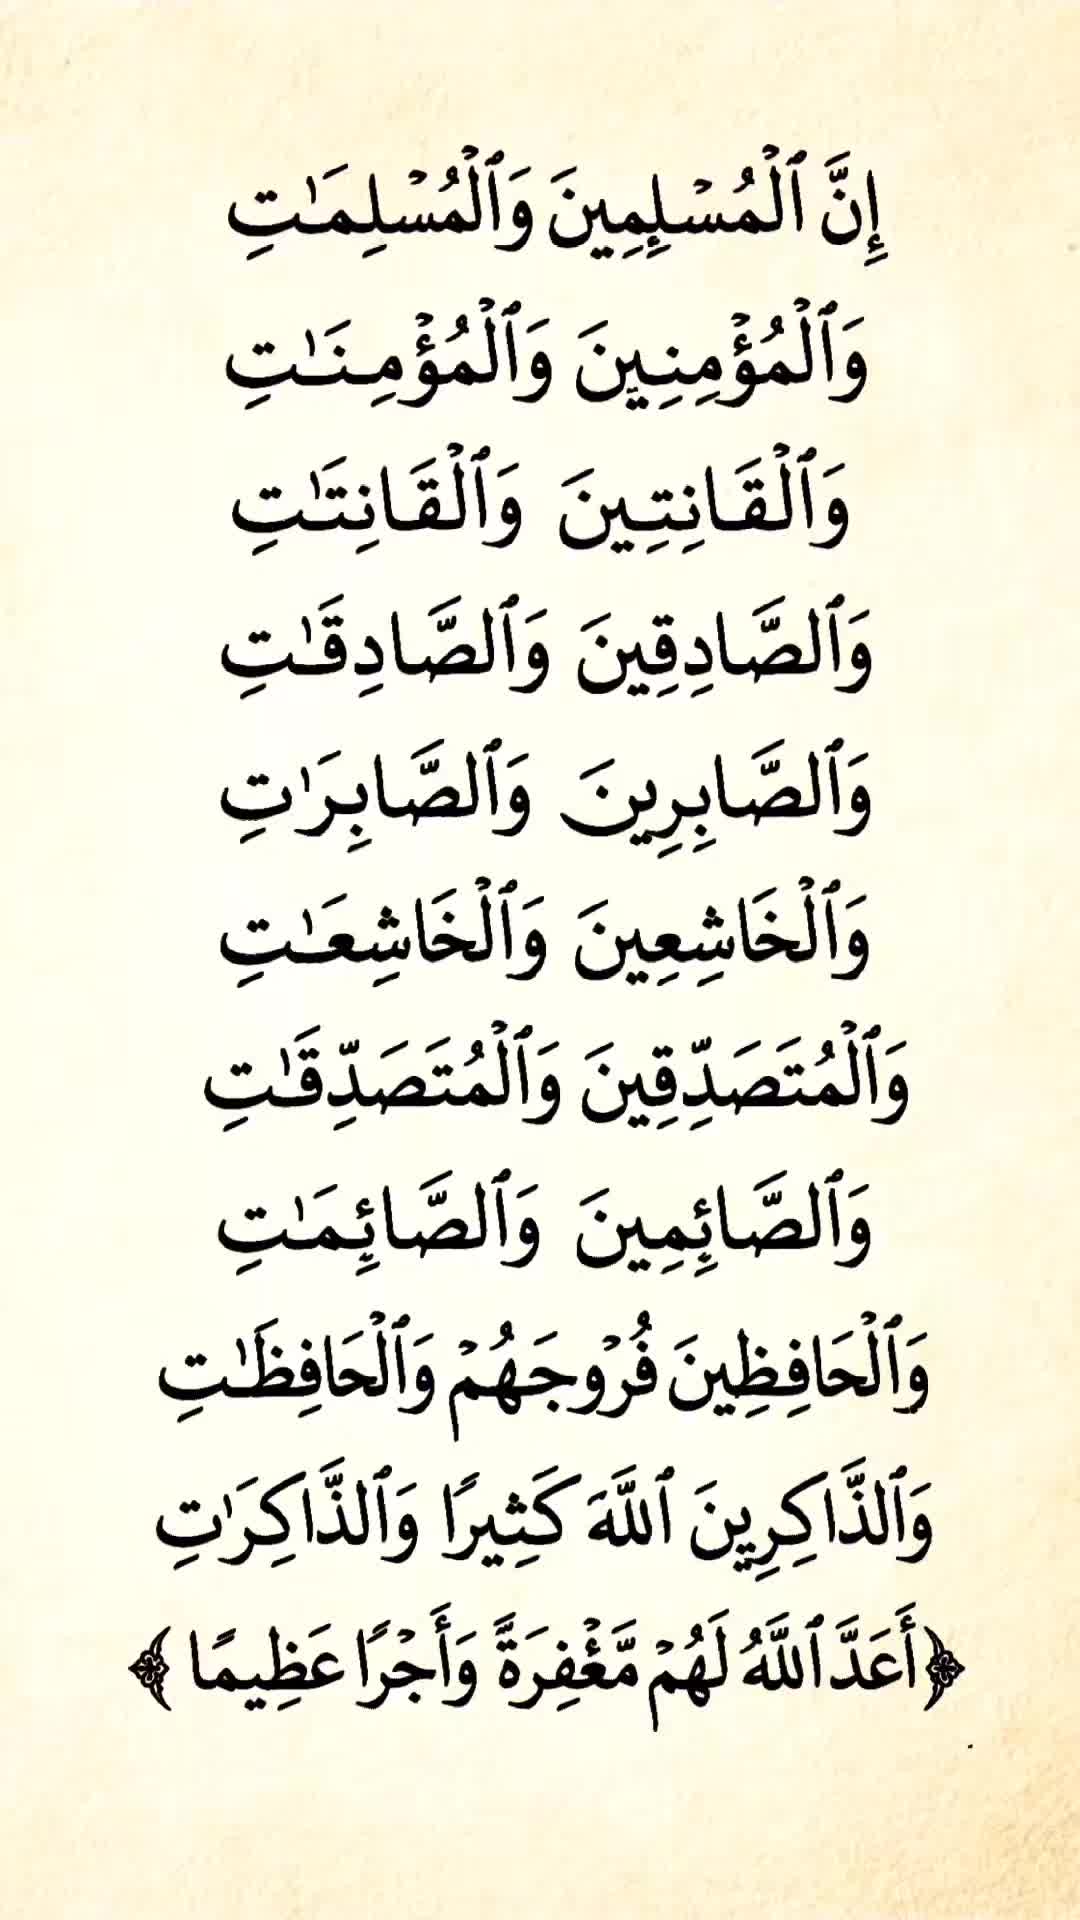 إِنَّ ٱلْمُسْلِمِينَ وَٱلْمُسْلِمَٰتِ
وَٱلْمُؤْمِنِينَ وَٱلْمُؤْمِنَٰتِ
وَٱلْقَانِتِينَ وَٱلْقَانِتَٰتِ
وَٱلصَّادِقِينَ وَٱلصَّادِقَٰتِ
وَٱلصَّابِرِينَ وَٱلصَّابِرَٰتِ
وَٱلْخَاشِعِينَ وَٱلْخَاشِعَٰتِ
وَٱلْمُتَصَدِّقِينَ وَٱلْمُتَصَدِّقَٰتِ
وَٱلصَّائِمِينَ وَٱلصَّائِمَٰتِ
وَٱلْحَافِظِينَ فُرْوجَهُمْ وَٱلْحَافِظَٰتِ
وَٱلذَّاكِرِينَ ٱللَّهَ كَثِيرًا وَٱلذَّاكِرَٰتِ
﴿أَعَدَّ ٱللَّهُ لَهُمْ مَّغْفِرَةً وَأَجْرًا عَظِيمًا﴾